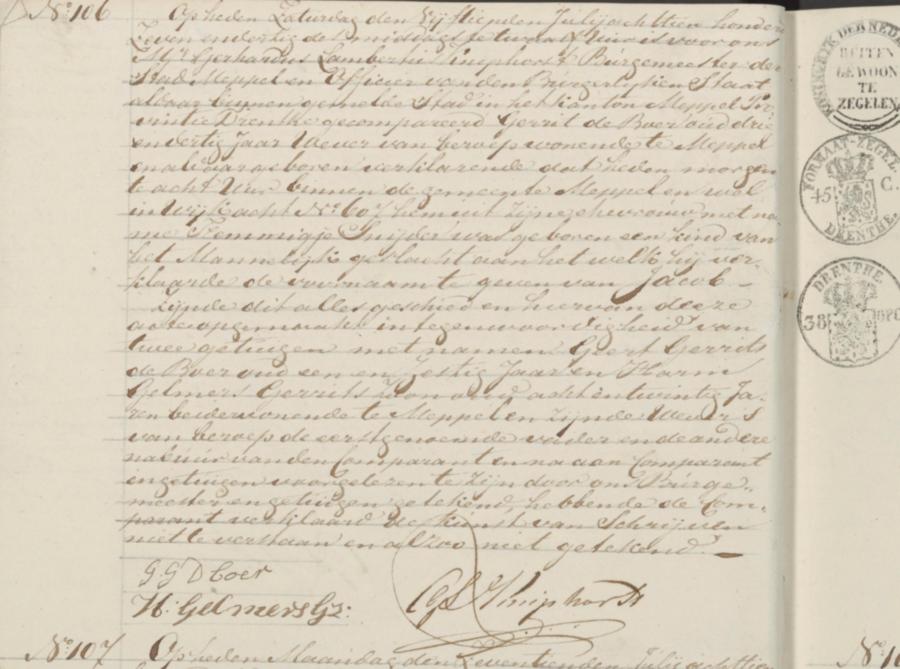 No 106
Op heden Zaturdag den Vijftienden Julij achttien honderd
Zeven en dertig des middags te twaalf Uur is voor ons
Mr Gerhardus Lambertus Kniphorst Burgemeester der
Stad Meppel en Officier van den Burgerlyken Staat
aldaar binnen gemelde Stad in het Kanton Meppel Pro
vintie Drenthe gecompareerd Gerrit de Boer oud drie
en dertig Jaar Wever van beroep wonende te Meppel
en aldaar geboren verklarende dat heden morgen
te acht Uur binnen de gemeente Meppel en wel
in Wijk acht No 607 hem uit zijne ehevrouw met na
me Femmigje Snijder was geboren een kind van
het Mannelijk geslacht aan het welk hij ver-
klaarde de voornaam te geven van Jacob –
zijnde dit alles geschied en hiervan deeze
acte opgemaakt in tegenwoordigheid van
twee getuigen met namen Geert Gerrits
de Boer oud een en zestig Jaar en Harm
Gelmers Gerrits Zoon oud acht en twintig Ja-
ren beide wonende te Meppel en zijnde Wever's
van beroep de eerstgenoemde vader en de andere
nabuur van den Comparant en na aan Comparant
en getuigen voorgelezen te zijn door ons Burge-
meester en getuigen getekend, hebbende de Com-
parant verklaard de kunst van Schrijven
niet te verstaan en alzoo niet getekend. —
G. G D boer
H: Gelmers Gz:
GL Kniphorst
No 107
Op heden Maandag den Zeventienden Julij achttien
KONINGRYK DER NEDE
BUITEN
GEWOON
TE
ZEGELEN
FORMAAT-ZEGEL.
45 C.
DRENTHE.
DRENTHE.
38 OPC
No 10